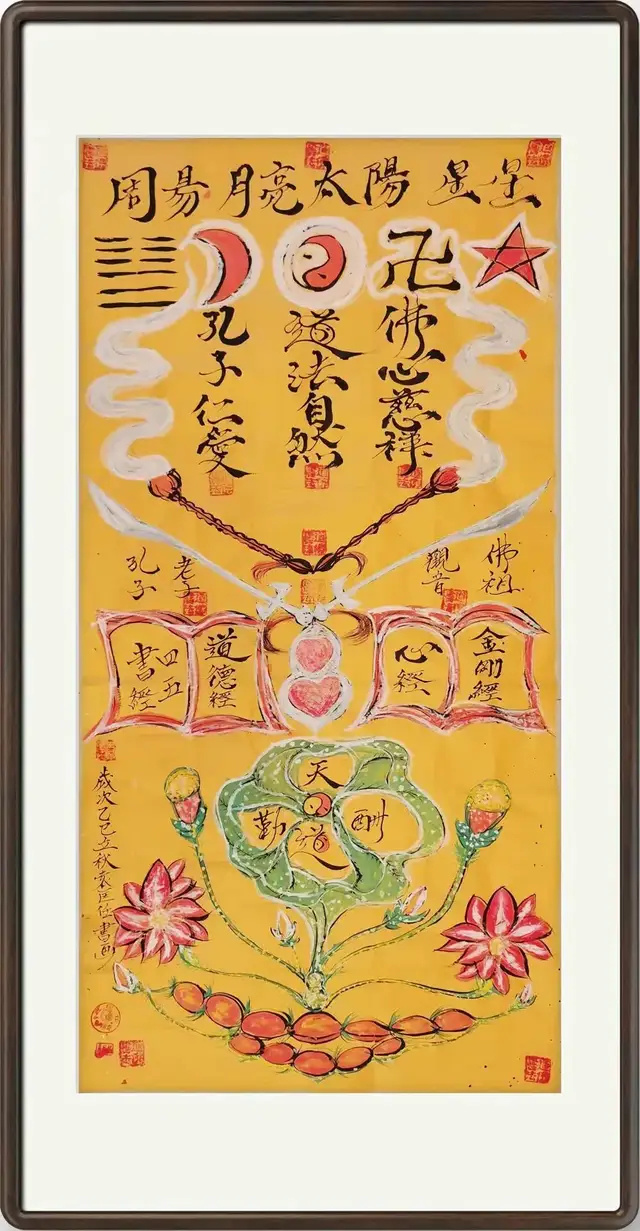 周易 月亮 太陽 星星
卍
佛心慈祥
道法自然
孔子仁愛
佛祖
觀音
老子
孔子
金剛經
心經
道德經
四五
書經
天道酬勤
歲次乙巳立秋 書画